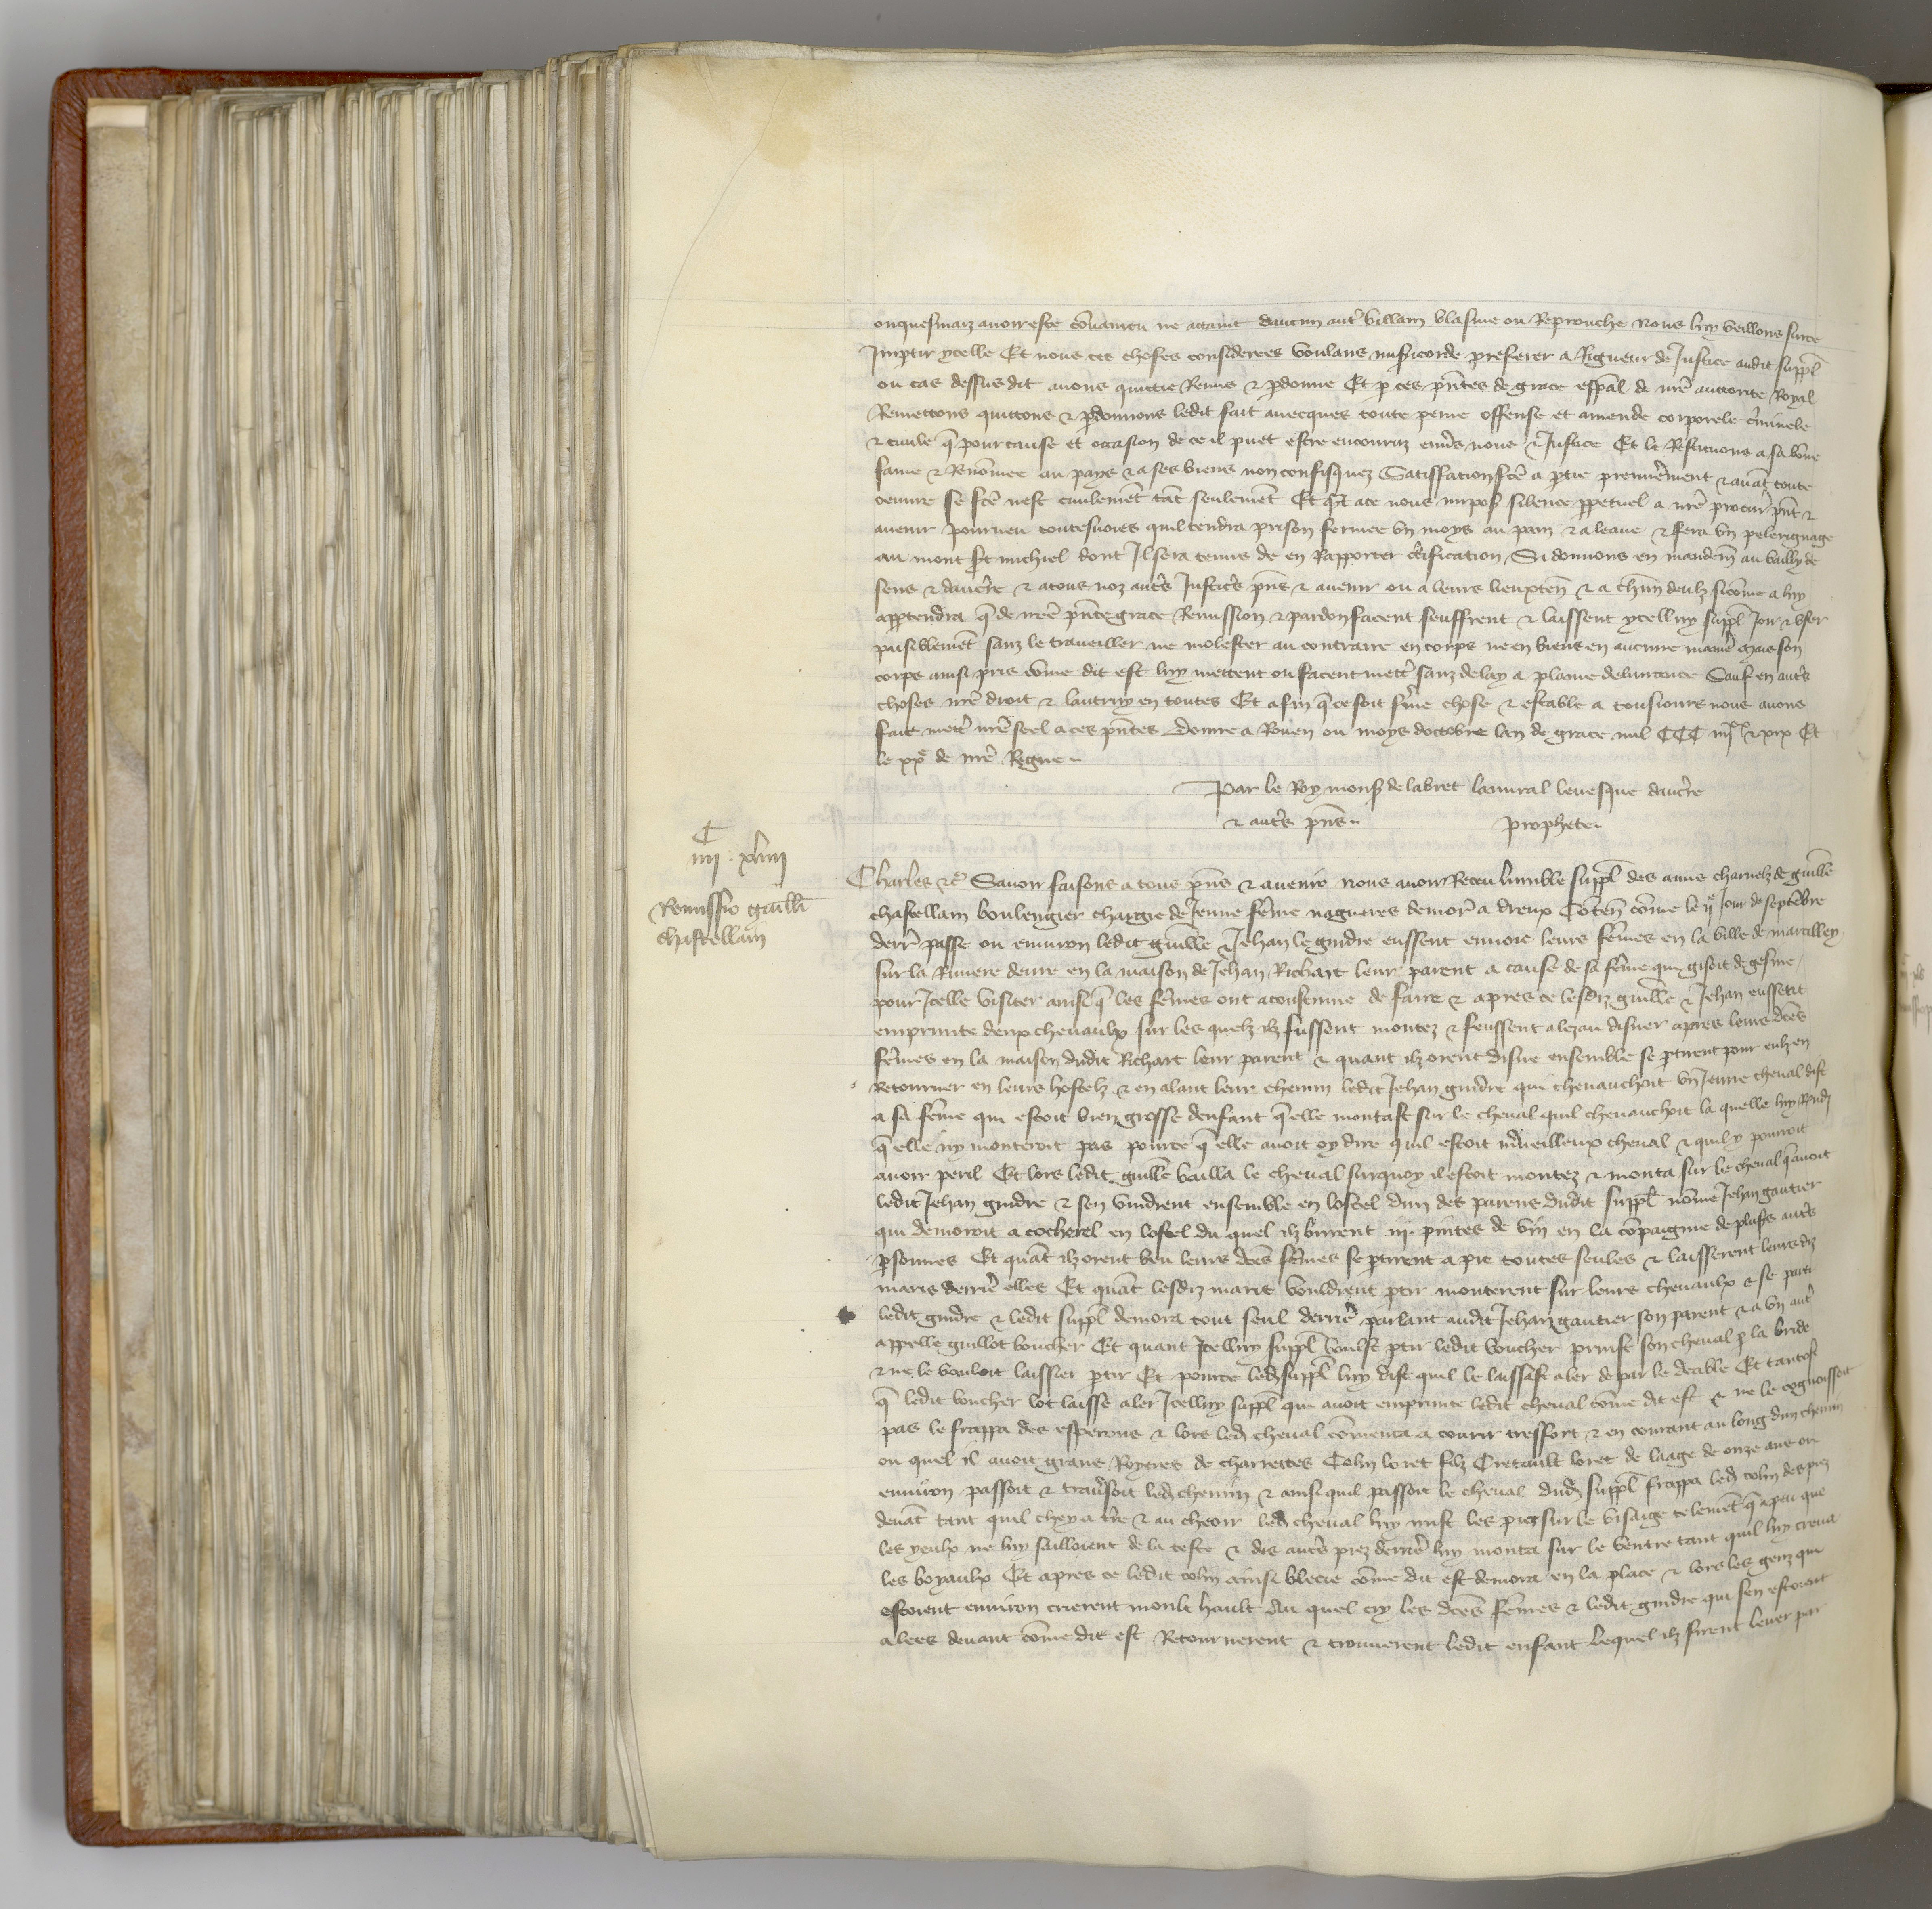 onquesmaiz avoir este co͂vaincu ne attaint daucun aut͛ villain blasme ou Reprouche nous luy veillons surce
Jmp͛tir ycelle Et nous ces choses considerees voulans mis͛icorde preferer a Rigueur de Justice audit suppl̄
ou cas dessusdit avons quictie Remis & p͛donne Et p̱ ces p̄ntes de grace esp̄al de n̄re auctorite Royal
Remettons quictons & p͛donnons ledit fait avecques toute peine offense et amende corporele c͛iminele
& civile q̄ pour cause et occasion de ce il puet estre encouruz env͛s nous & Justice Et le Restituons a sa bo͂ne
fame & Reno͂mee au pays & a ses biens non confisquez Satisfation f̄cē a p̱tie premie͛ment & ava͂t toute
oeuvre se f̄cē nest civileme͂t ta͂t seuleme͂t Et q̄nt a ce nous impos͛ silence pp̱etuel a n̄re procur̄ p̄nt &
avenir Pourveu toutesvoies quil tendra prison fermee un moys au pain & a leaue & fera un pelerignage
au mont s͛t michiel dont Jl sera tenus de en Rapporter c͛tification Si donnons en mandem̄ au bailly de
sens & daucer̄re & a tous noz aut͛s Justic͛s p̄ns & avenir ou a leurs lieuxten̄ & a ch̄un deulz sico͂me a luy
app̱tendra q̄ de n̄re p̄nte grace Remission & pardon facent seuffrent & laissent ycelluy suppl̄ Joir & user
paisibleme͂t sanz le traveiller ne molester au contraire en corps ne en biens en aucune manie͛ mais son
corps ainsi pris co͂me dit est luy mettent ou facent mett͛ sanz delay a plaine delivrance Sauf en aut͛s
choses n̄re droit & lautruy en toutes Et afin q̄ ce soit f͛me chose & estable a tousiours nous avons
fait mett͛ n̄re seel a ces p̄ntes Donne a Rouen ou moys doctobre lan de grace mil CCC iiij xx & xix Et
le xxe de n̄re Regne
Par le Roy mons͛ de labret lamiral levesque daucer̄re
& aut͛s p̄ns prophete
C
iiij . xliiij
Remissio guill̄i
chastellain
Charles &c͛ Savoir faisons a tous p̄ns & avenir nous avoir Receu lumble suppl̄ des amis charnelz de guill̄e
chastellain boulengier chargie de Jeune fe͂me nagueres demor̄ a dreux Co͂ten̄ co͂me le ije Jour de septe͂bre
derr̄ passe ou environ ledit guill̄e & Jehan le gindre eussent envoie leurs fe͂mes en la ville de marcilley
sur la Riviere deure en la maison de Jehan Richart leur parent a cause de sa fe͂me qui gisoit de gesine
pour Jcelle visiter ainsi q̄ les fe͂mes ont acoustume de faire & apres ce lesdiz guill̄e & Jehan eussent
emprunte deux chevaulx sur les quelz ilz fussent montez & feussent alez au disner apres leurs dc̄es
fe͂mes en la maison dudit Richart leur parent & quant ilz orent disne ensemble se p̱tirent pour eulz en
Retourner en leurs hostelz & en alant leur chemin ledit Jehan gindre qui chevauchoit un Jeune cheval dist
a sa fe͂me qui estoit bien grosse denfant q̄ elle montast sur le cheval quil chevauchoit la quelle luy Rnd͛
q̄ elle ny monteroit pas pource q̄ elle avoit oy dire quil estoit m͛veilleux cheval & quil y pourroit
avoir peril Et lors ledit guill̄e bailla le cheval surquoy il estoit montez & monta sur le cheval q̄ avoit
ledit Jehan gindre & sen vindrent ensemble en lostel dun des parens dudit suppl̄ no͂me Jehan gautier
qui demoroit a cocherel en lostel du quel ilz burent iij. pintes de vin en la co͂paignie de plus͛s aut͛s
p̱sonnes Et qua͂t ilz orent beu leurs dc̄es fe͂mes se p̱tirent a pie toutes seules & laisserent leursdiz
maris derrie͛ elles Et qua͂t lesdiz maris vouldrent p̱tir monterent sur leurs chevaulx & se parti
ledit gindre & ledit suppl̄ demora tout seul derrie͛ parlant audit Jehan gautier son parent & a un aut͛
appelle guillot boucher Et quant Jcelluy suppl̄ voulst p̱tir ledit boucher prinst son cheval p̱ la bride
& ne le vouloit laissier p̱tir Et pource led͛ suppl̄ luy dist quil le laissast aler de par le deable Et tantost
q̄ ledit boucher lot laisse aler Jcelluy suppl̄ que avoit emprunte ledit cheval co͂me dit est & ne le cognoissoit
pas le frappa des esperons & lors led͛ cheval co͂menca a courir tresfort & en courant au long dun chemin
ou quel il avoit grans Royeres de charrettes Colin loret filz Cretault loret de laage de onze ans ou
environ passoit & trav͛soit led͛ chemin & ainsi quil passoit le cheval dud͛ suppl̄ frappa led͛ colin des piez
deva͂t tant quil chey a t͛re & au cheoir led͛ cheval luy mist les piez sur le visaige teleme͂t q̄ a peu que
les yeulx ne luy sailloient de la teste & des aut͛s piez derrie͛ luy monta sur le ventre tant quil luy creva
les boyaulx Et apres ce ledit colin ainsi blecie co͂me dit est demora en la place & lors les genz qui
estoient environ crierent moult hault Au quel cry les dc̄es fe͂mes & ledit gindre qui sen estoient
alees devant co͂me dit est Retournerent & trouverent ledit enfant lequel ilz firent lever par